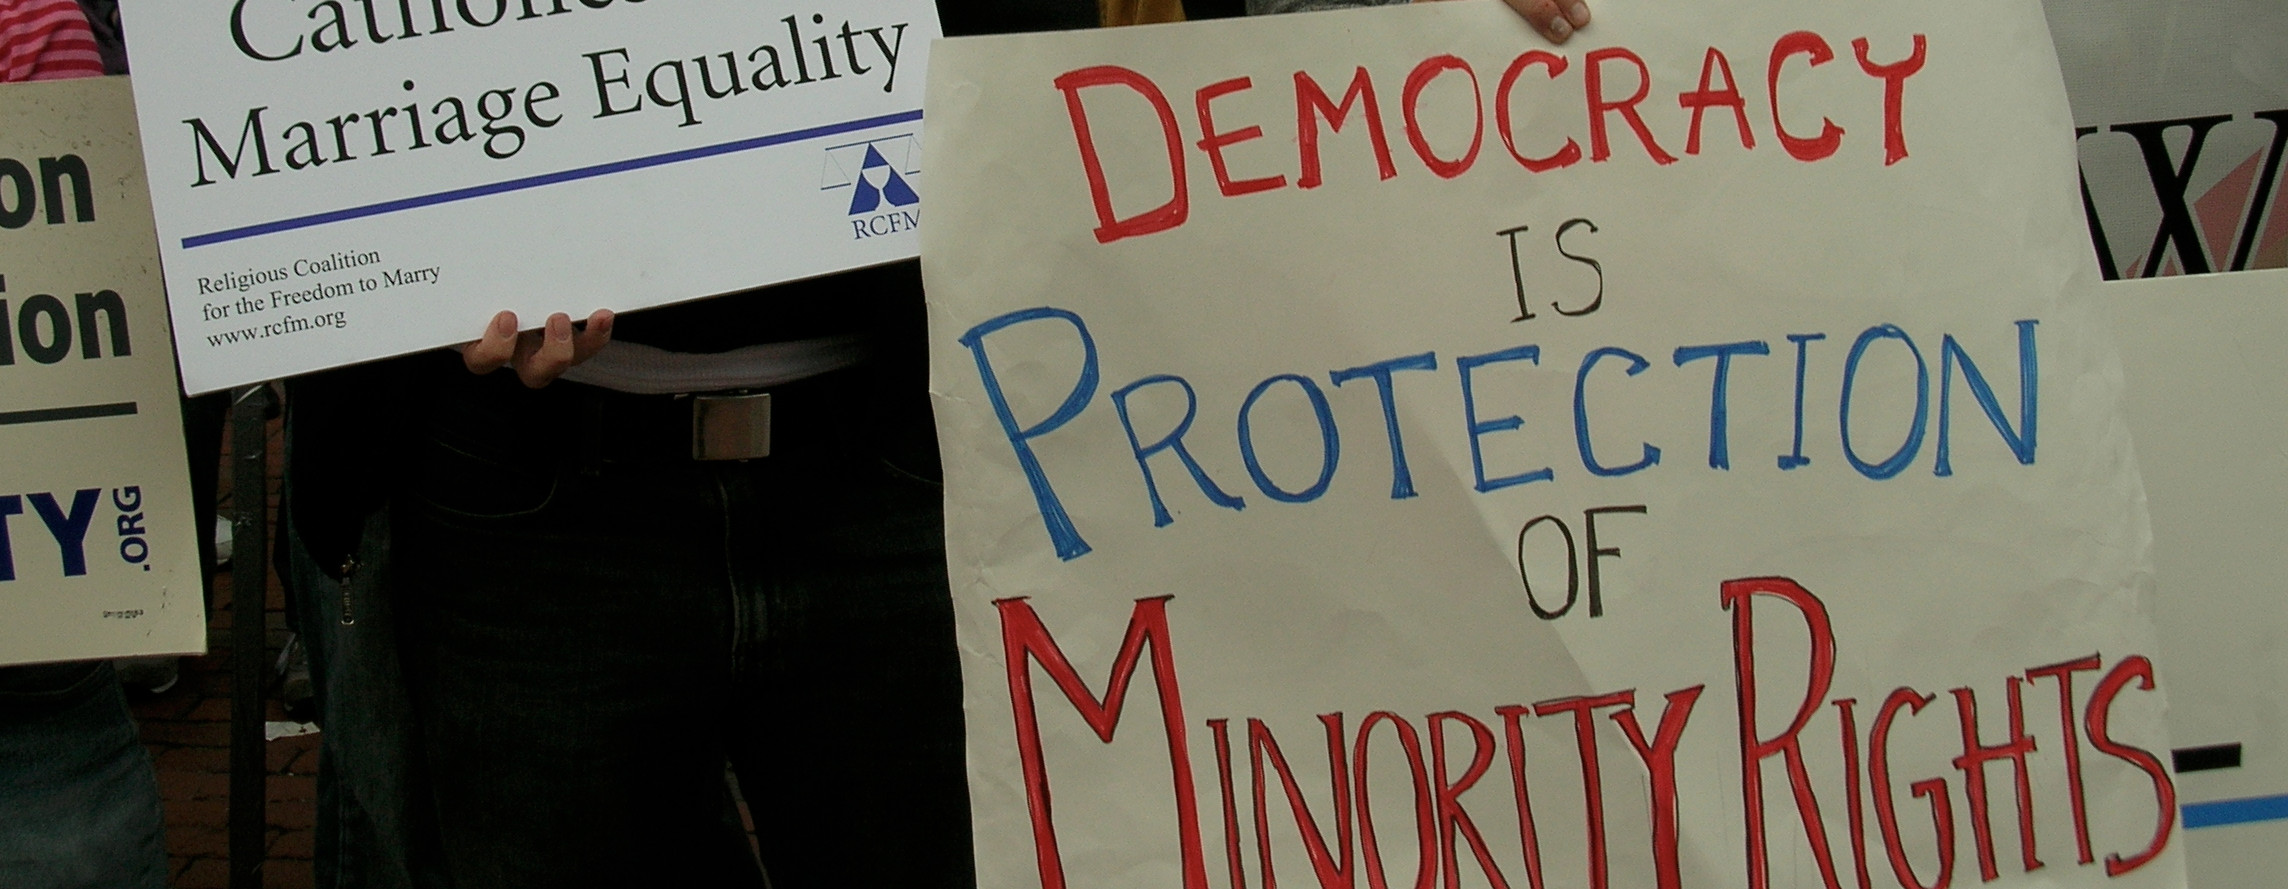 on
ion
TY.ORG
Marriage Equality
RCFM
Religious Coalition
for the Freedom to Marry
www.rcfm.org
DEMOCRACY
IS
PROTECTION
OF
MINORITY RIGHTS